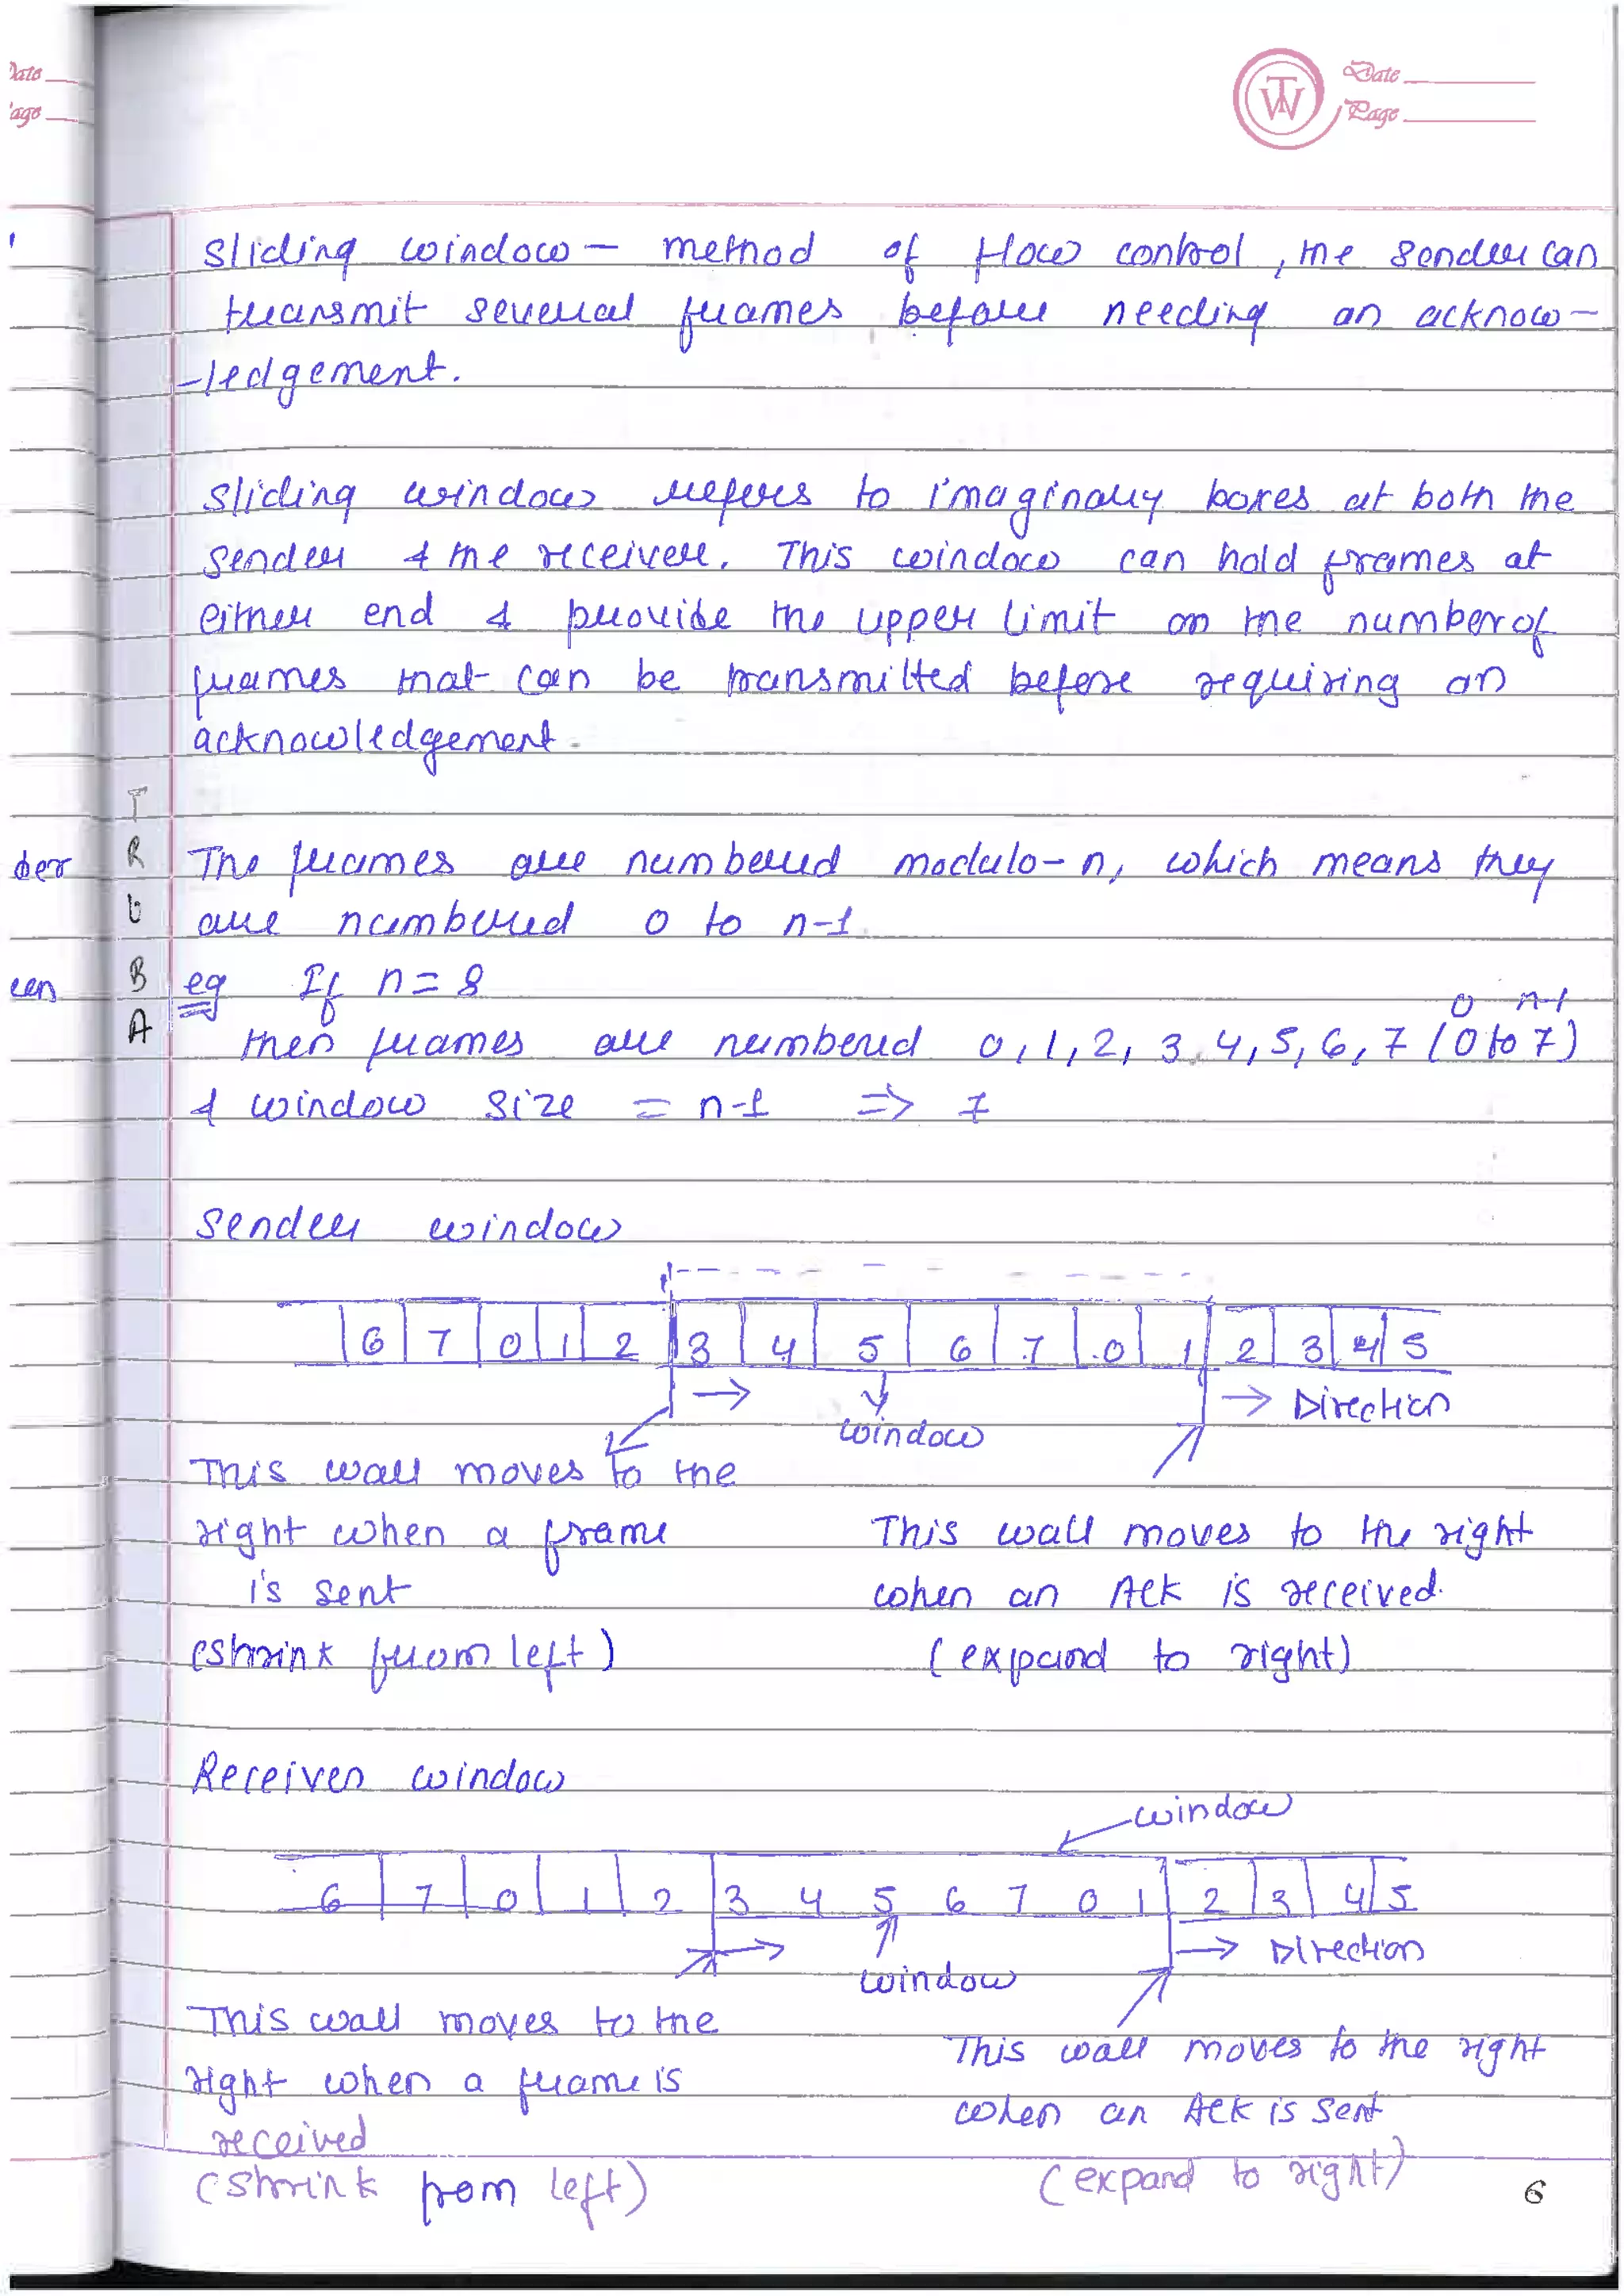 Date
Page
Date
Page
sliding window – method of flow control, the sender can
transmit several frames before needing an acknow–
–ledgement.
sliding window refers to imaginary boxes at both the
sender & the receiver. This window can hold frames at
either end & provide the upper limit on the number of
frames that can be transmitted before requiring an
acknowledgement.
T
R
U
B
A
der
The frames are numbered modulo–n, which means they
are numbered 0 to n-1.
een
eg If n = 8
0 n-1
then frames are numbered 0, 1, 2, 3, 4, 5, 6, 7 (0 to 7)
& window size = n-1 => 7
Sender window
6 7 0 1 2 3 4 5 6 7 0 1 2 3 4 5
→ window → Direction
This wall moves to the
right when a frame
is sent
(shrink from left)
This wall moves to the right
when an Ack is received.
(expand to right)
Receiver window
window
6 7 0 1 2 3 4 5 6 7 0 1 2 3 4 5
→ window → Direction
This wall moves to the
right when a frame is
received
(shrink from left)
This wall moves to the right
when an Ack is sent
(expand to right)
6